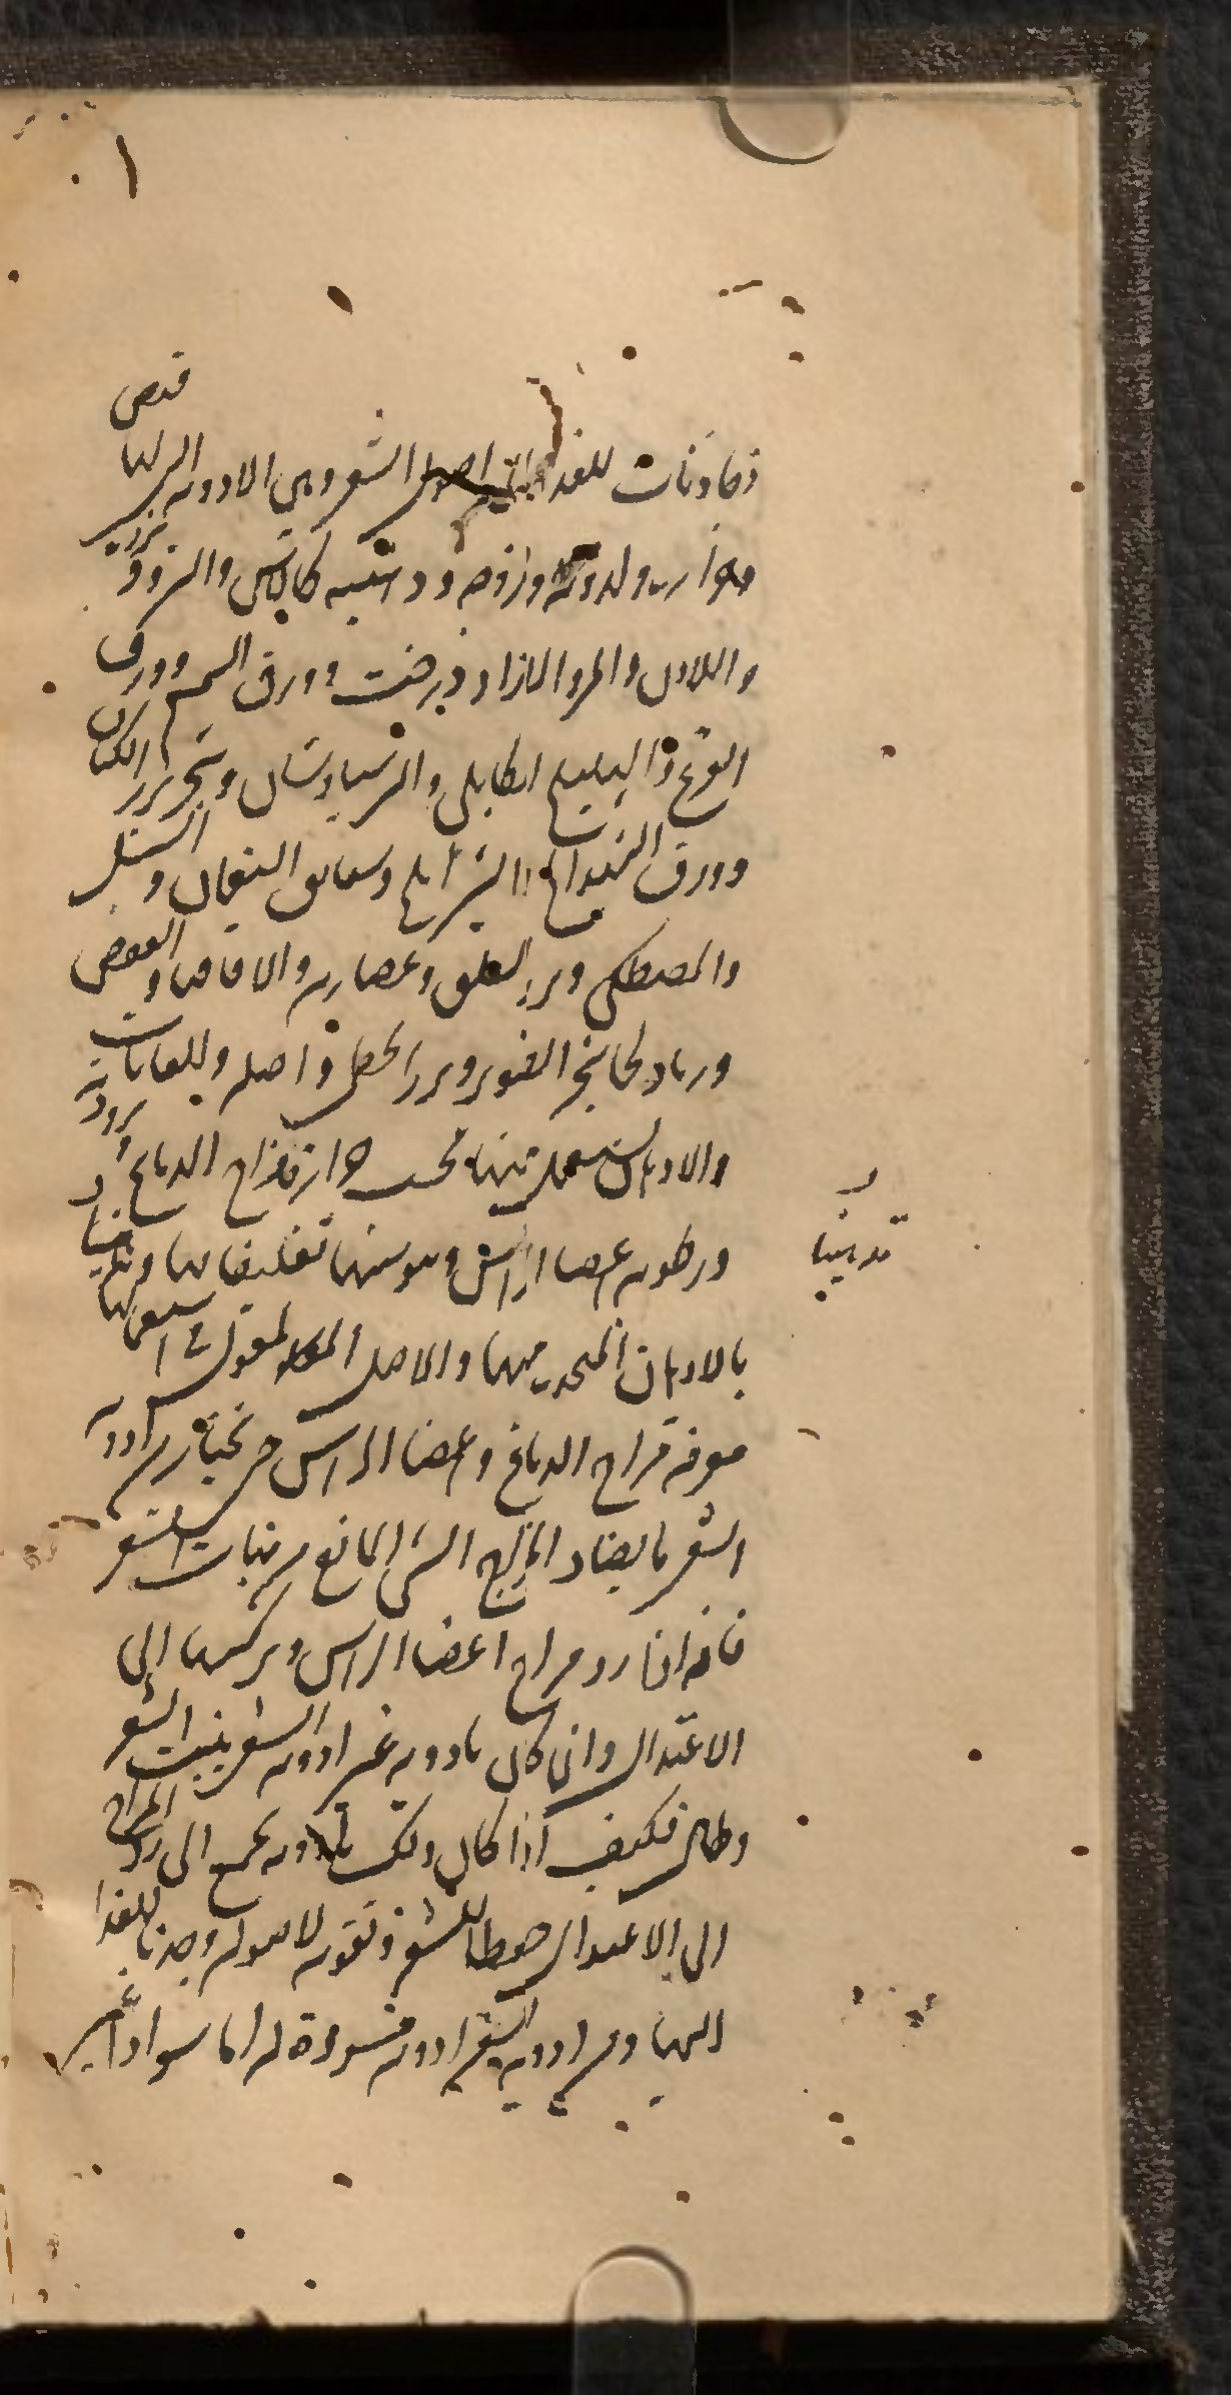 ١
وجاذبات للغذا الى اصول الشعر وهي الادويه التي لها قبض
وحرارة ولدونه ولزوجه ودهنيه كالاس والزوفا
واللادن والمر والازاددرخت وورق السمسم وورق
القرع والهليلج الكابلى والبرسياوشان وبزر الكتان
وورق الشير املج وشقايق النعمان والسنبل
والمصطكى وبزر السلق وعصارته والاقاقيا والعفص
ورماد لحا شجر الصنوبر وبزر الخطمى واصله وللعابات
والادهان يستعمل منها بحسب حرارة مزاج الدماغ وبرودته
ورطوبه اعضا الراس ويبوستها تغليفا بها وتدهينا
تدهينا
بالادهان المتخذه منها والاصل المعول فى استعمالها
معرفه مزاج الدماغ واعضا الراس حتى تختار من ادويه
الشعر ما يضاد المزاج السى المانع من نبات الشعر
فانه اذا رد مزاج اعضا الراس وتركيبها الى
الاعتدال وان كان بادويه غير ادويه الشعر ينبت الشعر
وطال فكيف اذا كان ذلك بادويه تجمع الى رد المزاج
الى الاعتدال حفظا للشعر وتقويه لاصوله وجذبا للغذا
اليها ومن ادويه الشعر ادويه مسوده له اما سوادا